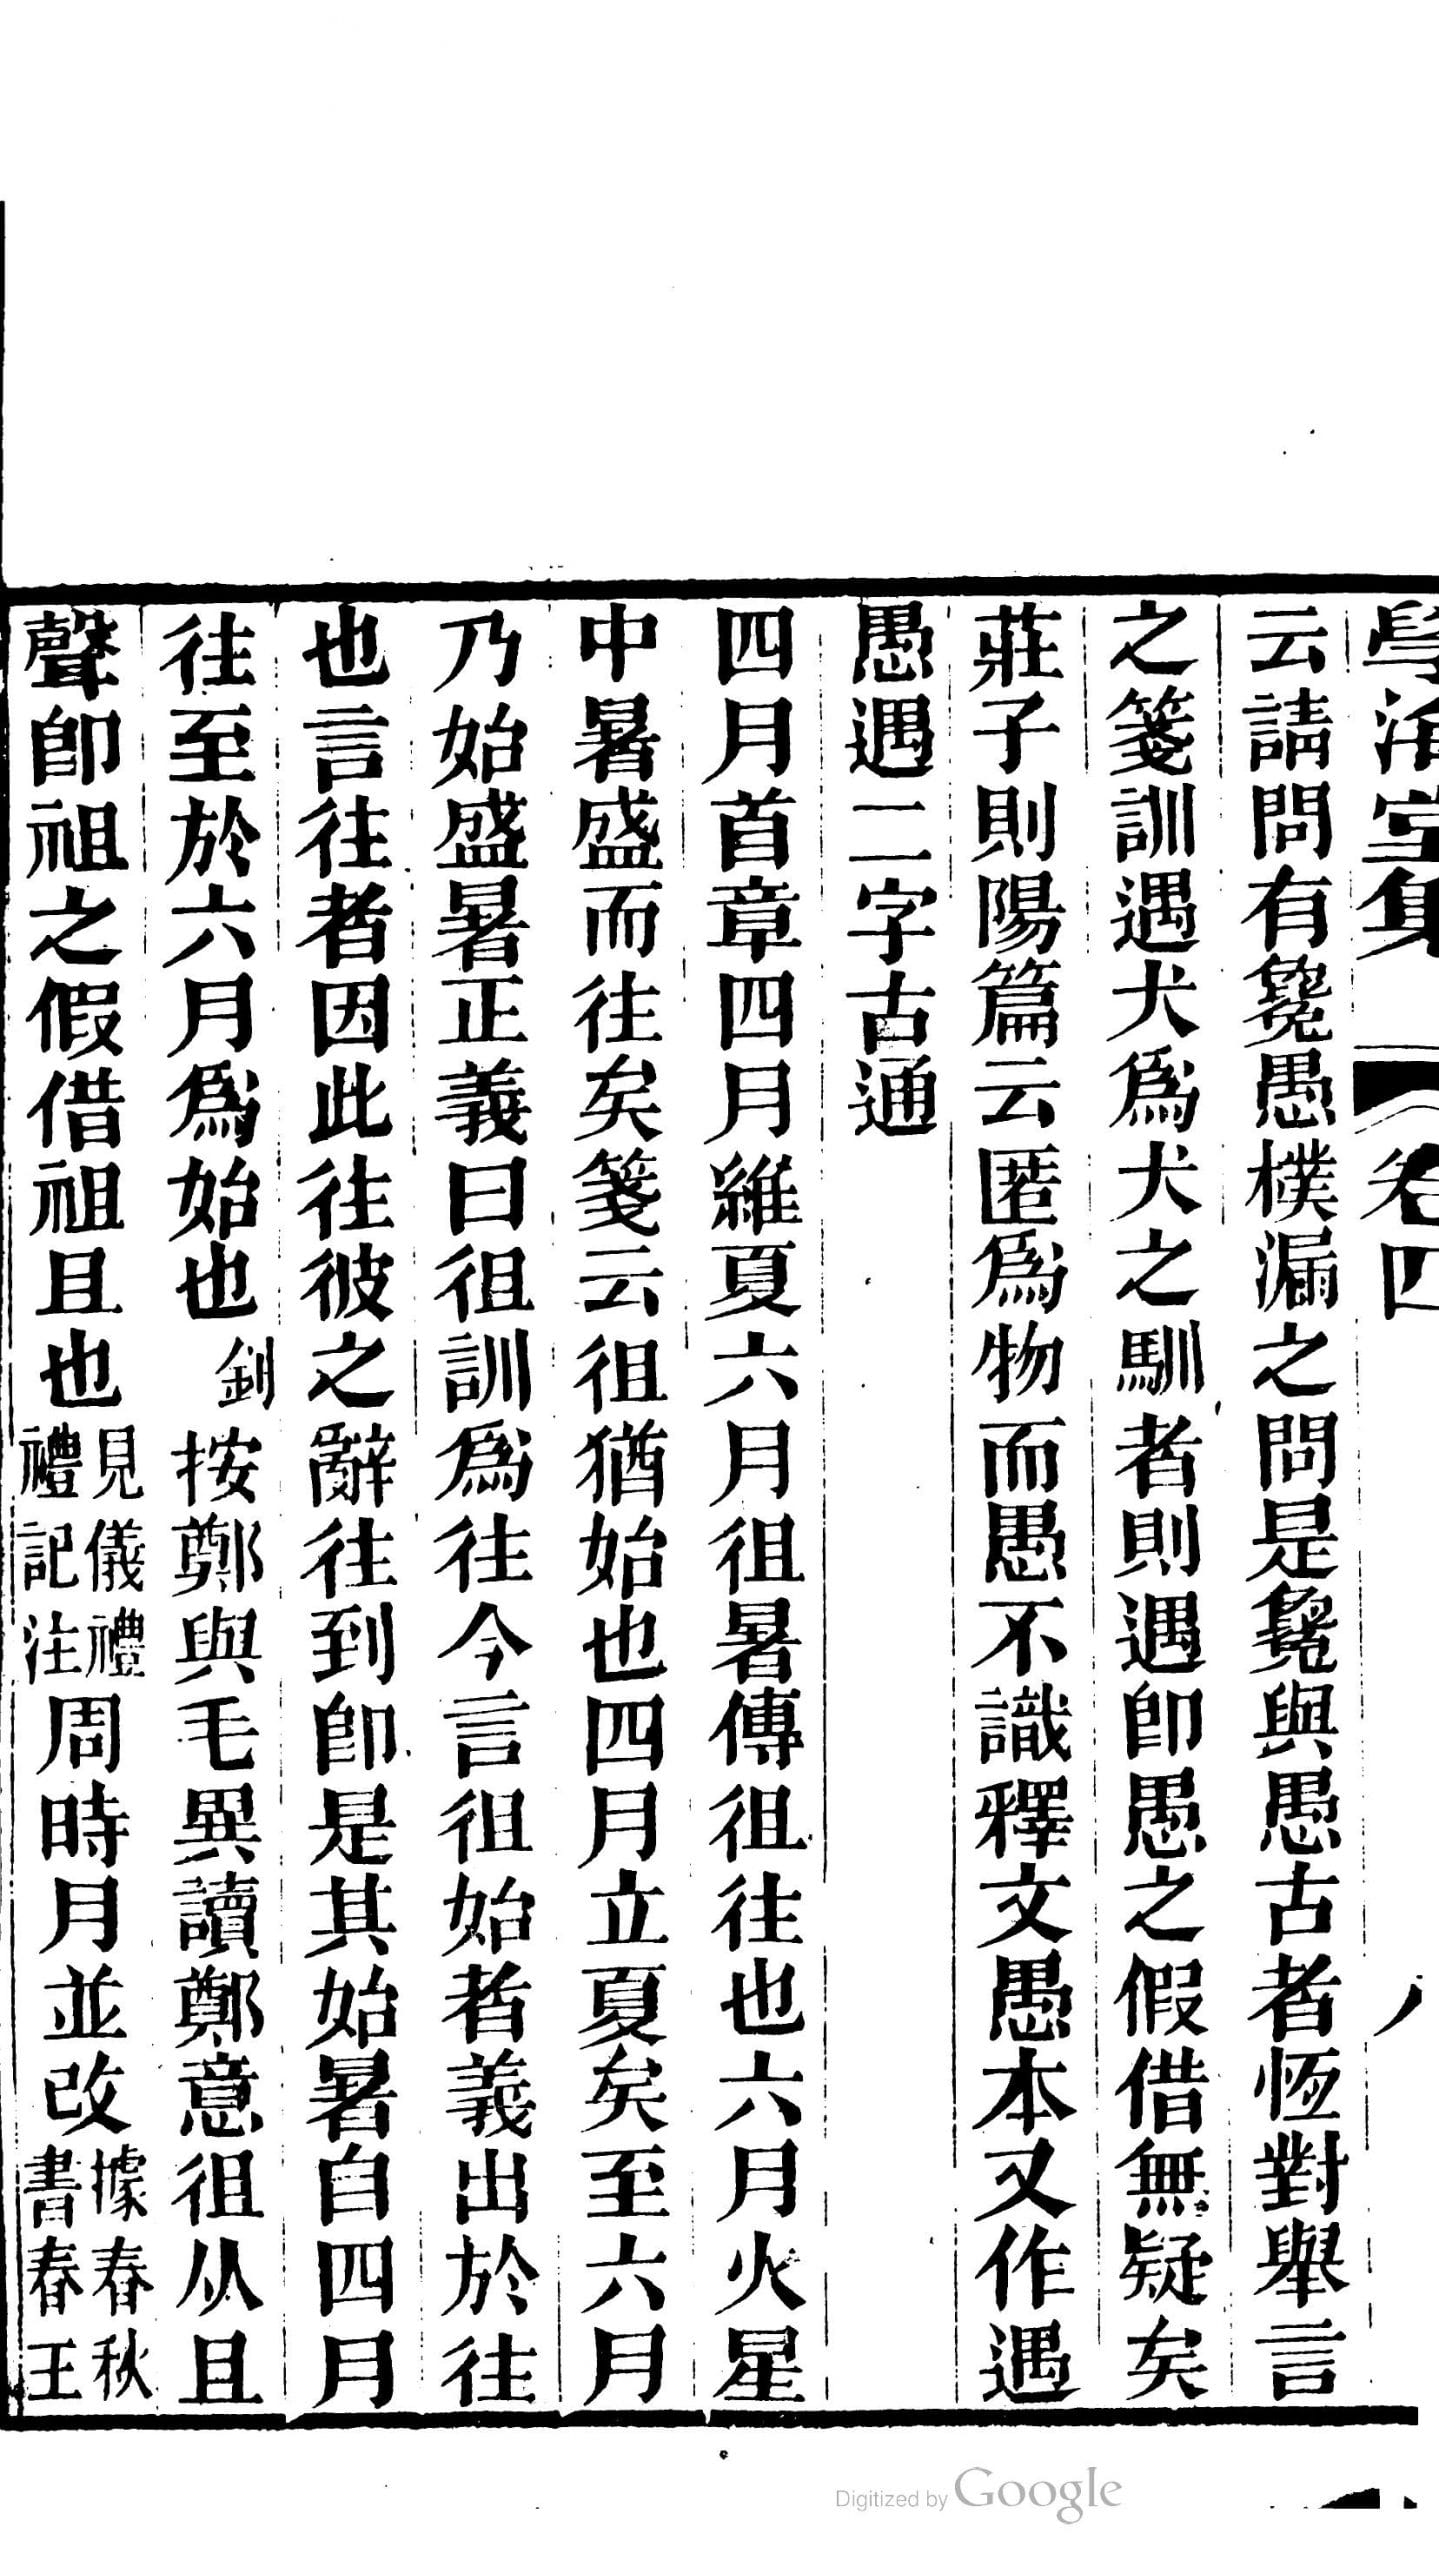 學海堂集 卷四
云請問有毚愚樸漏之問是毚與愚古者恆對舉言
之箋訓遇犬爲犬之馴者則遇卽愚之假借無疑矣
莊子則陽篇云匿爲物而愚不識釋文愚本又作遇
愚遇二字古通
四月首章四月維夏六月徂暑傳徂往也六月火星
中暑盛而往矣箋云徂猶始也四月立夏矣至六月
乃始盛暑正義曰徂訓爲往今言徂始者義出於往
也言往者因此往彼之辭往到卽是其始暑自四月
往至於六月爲始也 釗按鄭與毛異讀鄭意徂从且
聲卽祖之假借祖且也見儀禮禮記注周時月並改據春秋書春王
Digitized by Google